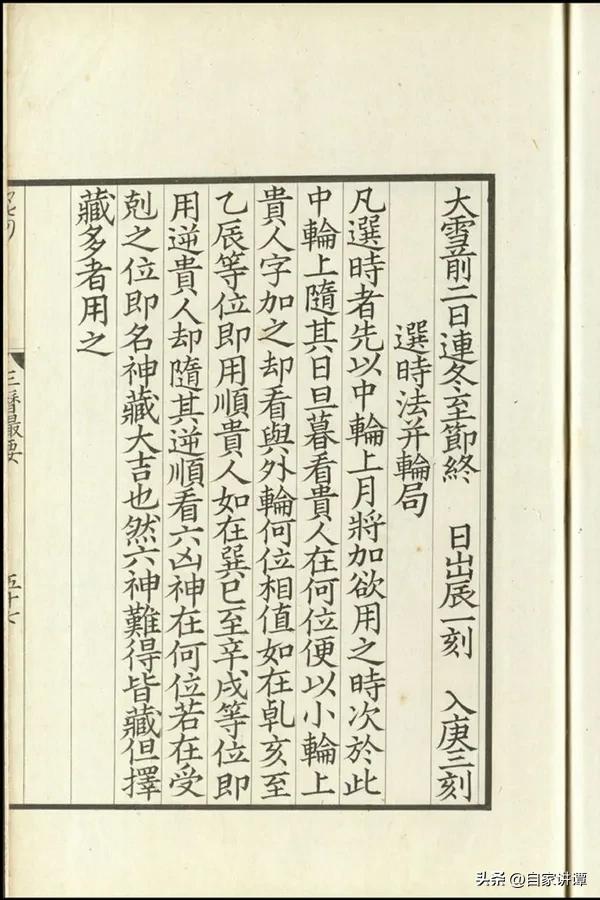 大雪前二日連冬至節終　日出辰一刻　入庚三刻
選時法并輪局
凡選時者先以中輪上月將加欲用之時次於此
中輪上隨其日旦暮看貴人在何位便以小輪上
貴人字加之却看與外輪何位相值如在乹亥至
乙辰等位即用順貴人如在巽巳至辛戌等位即
用逆貴人却隨其逆順看六凶神在何位若在受
剋之位即名神藏大吉也然六神難得皆藏但擇
藏多者用之
三曆最要
五十七
头条 @自家讲谭